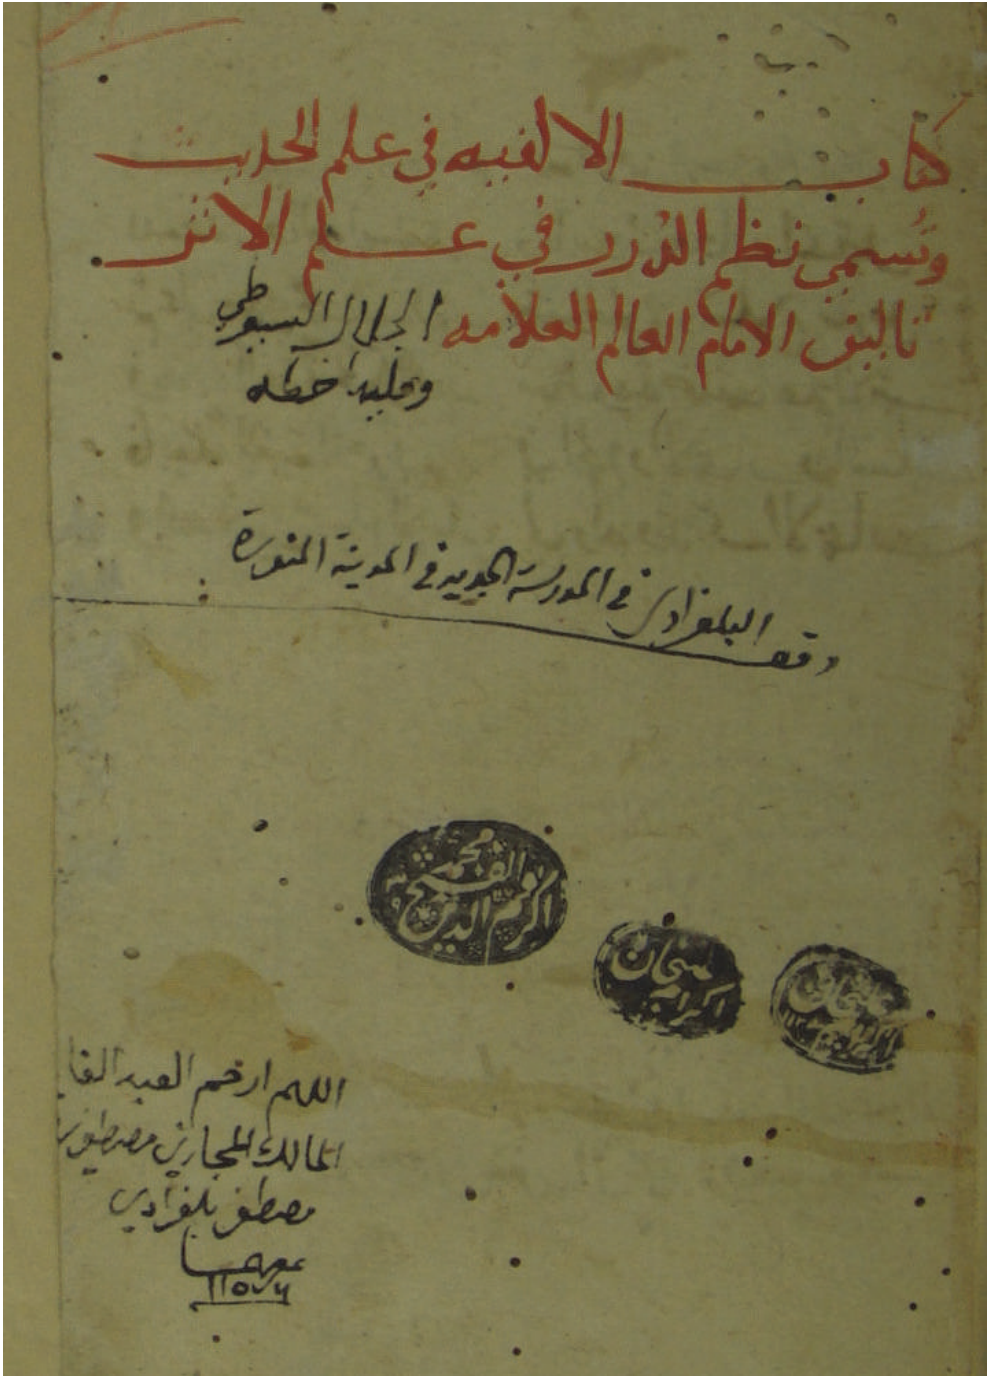 كتاب الالفيه في علم الحديث
وتسمي نظم الدرر في علم الاثر
تاليف الامام العالم العلامه الجلال السيوطي
وعليه خطه
وقف البلغرادي في المدرسة الجديدة في المدينة المنورة
محمد
الفتح
اكرم الدين
سبحان
اللهم ارحم العبد الفا
المالك المجازي مصطفى
مصطفى بلغرادي
عفي عنهما